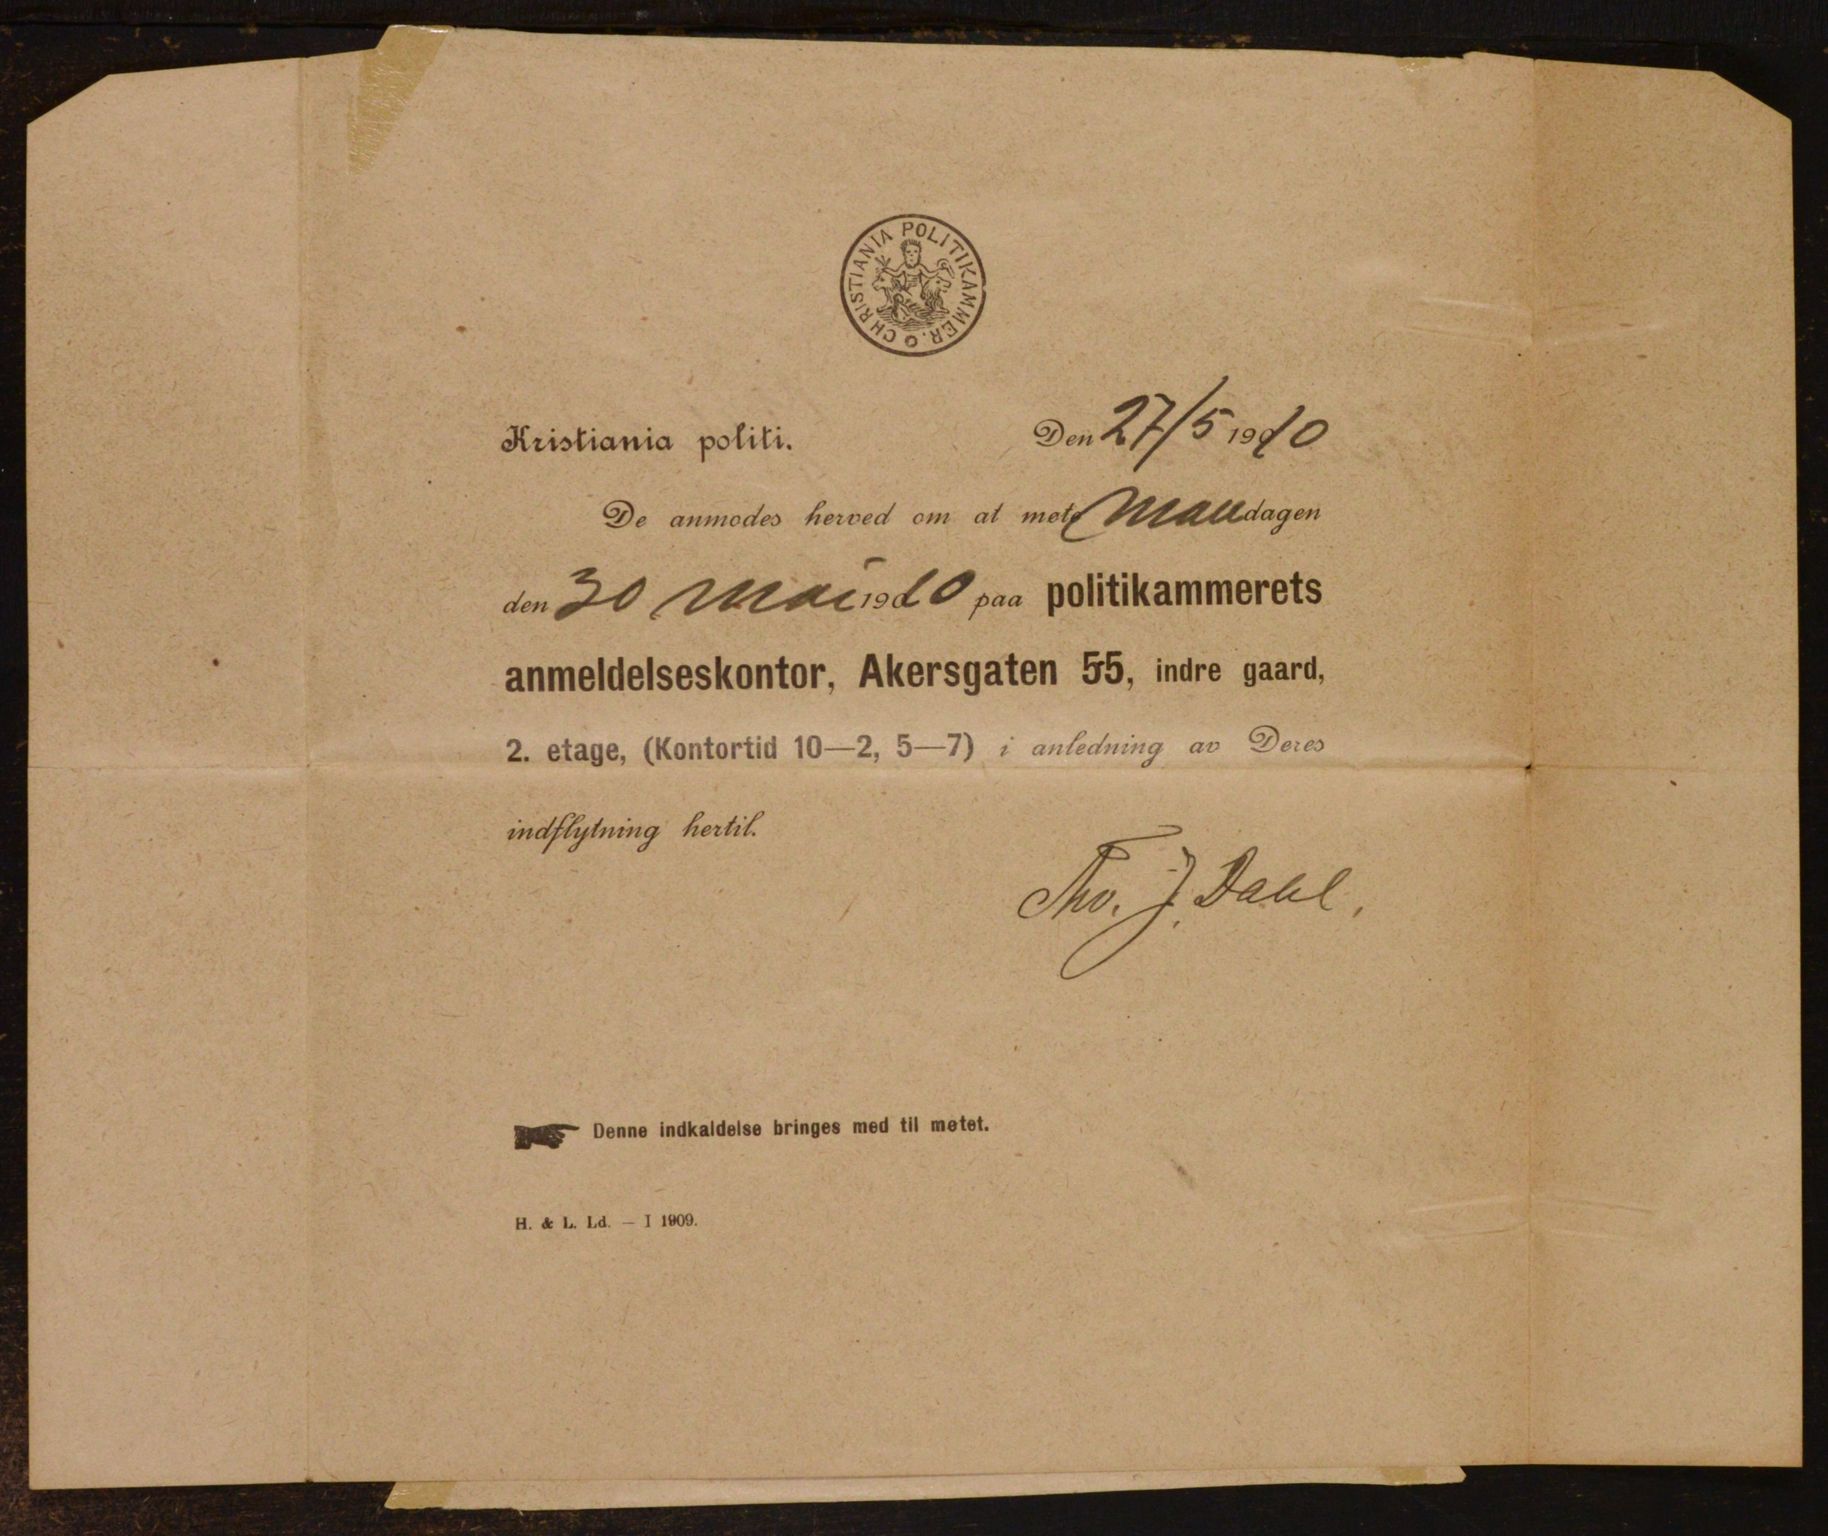 CHRISTIANIA POLITIKAMMER.
Kristiania politi. Den 27/5 1910
De anmodes herved om at møte Mandagen
den 30 Mai 1910 paa politikammerets
anmeldelseskontor, Akersgaten 55, indre gaard,
2. etage, (Kontortid 10—2, 5—7) i anledning av Deres
indflytning hertil.
Tho. J. Dahl.
Denne indkaldelse bringes med til møtet.
H. & L. Ld. — I 1909.